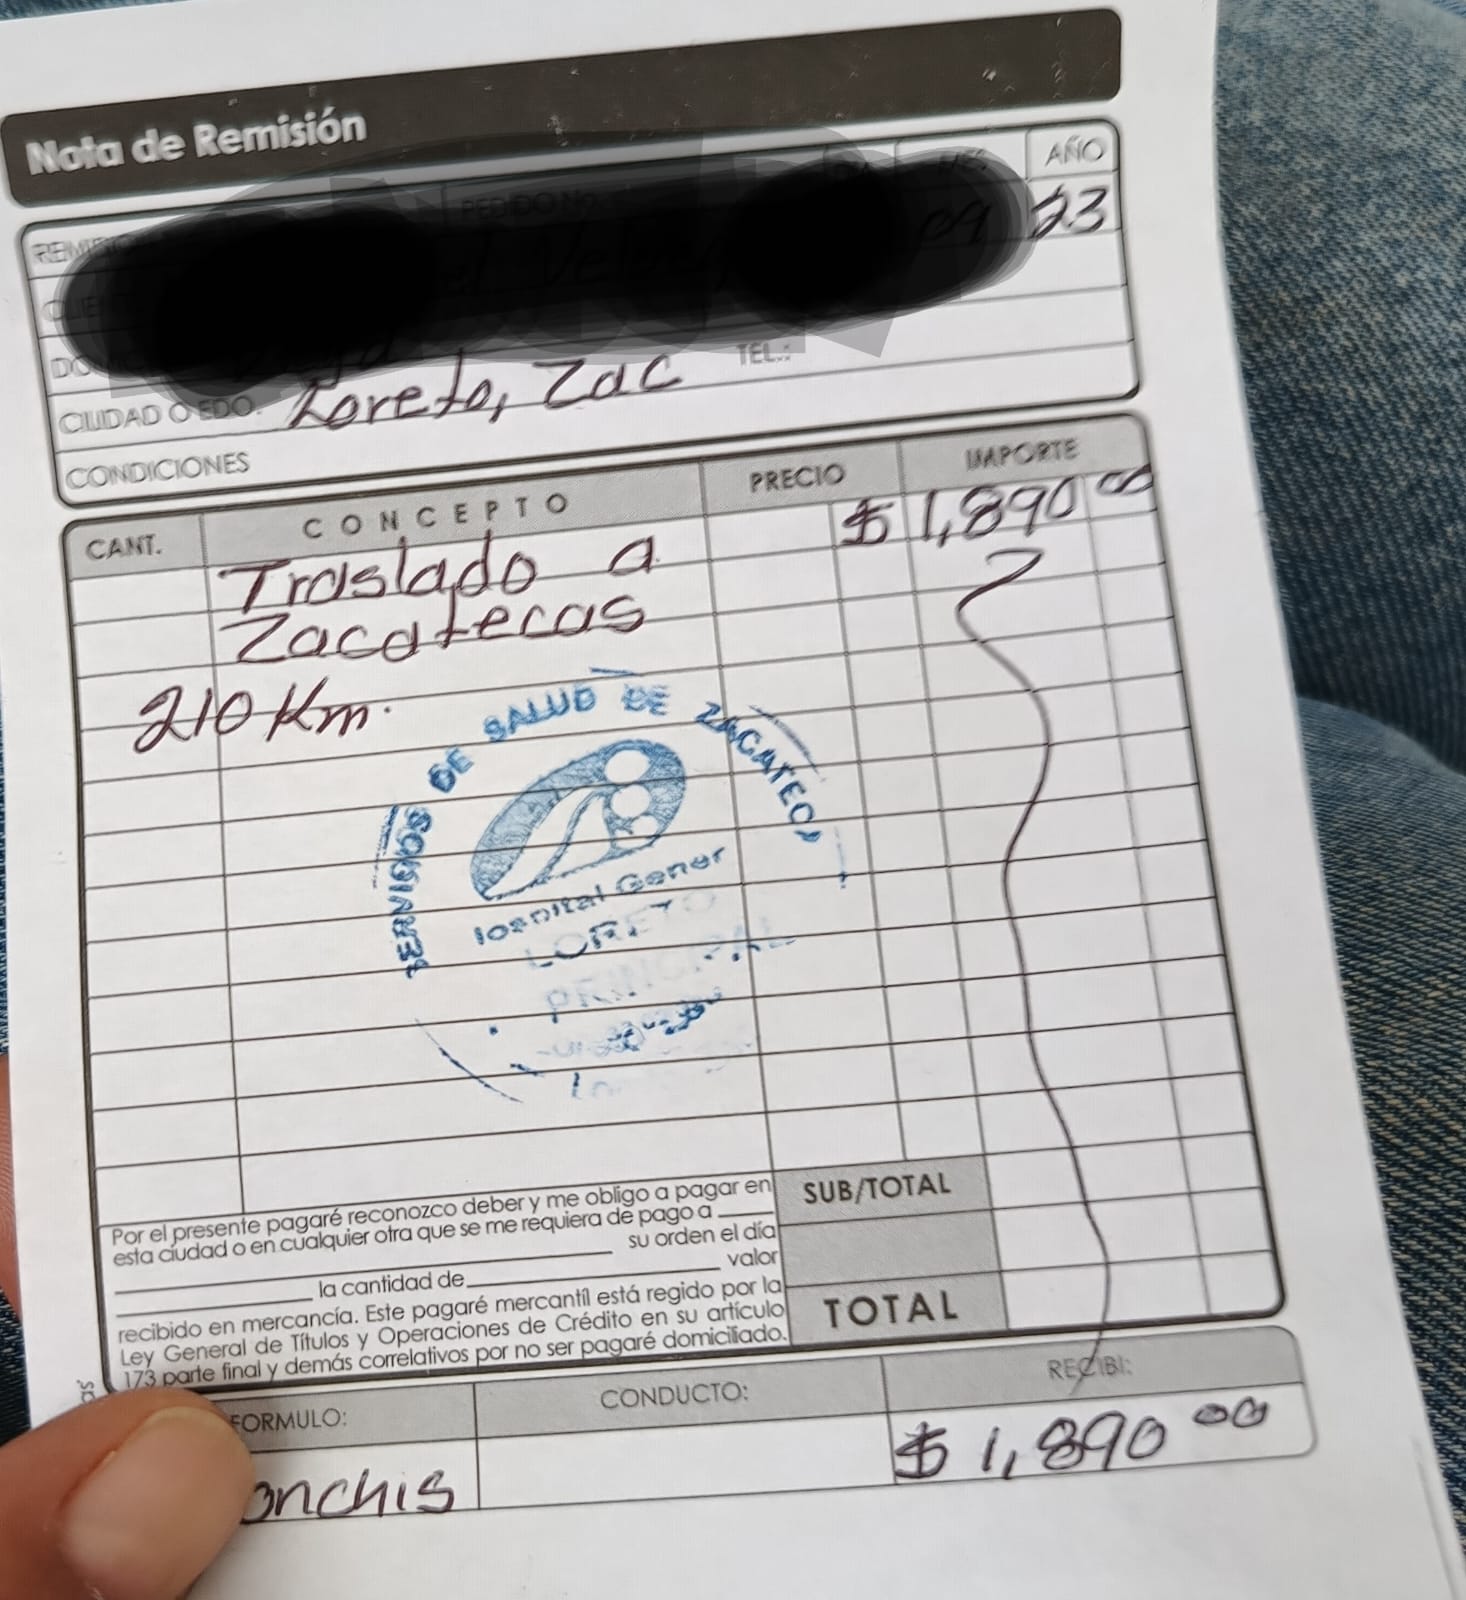 Nota de Remisión
AÑO
09 23
CIUDAD O EDO. Loreto, Zac TEL.:
CONDICIONES
CANT. CONCEPTO PRECIO IMPORTE
Traslado a $ 1,890 00
Zacatecas
210 Km.
DE SALUD DE ZACATECA
Hospital Gener
LORETO
PRINCIPAL
Por el presente pagaré reconozco deber y me obligo a pagar en
esta ciudad o en cualquier otra que se me requiera de pago a
su orden el día
valor
la cantidad de
recibido en mercancía. Este pagaré mercantil está regido por la
Ley General de Títulos y Operaciones de Crédito en su artículo
173 parte final y demás correlativos por no ser pagaré domiciliado.
SUB/TOTAL
TOTAL
FORMULO: CONDUCTO: RECIBI:
onchis $ 1,890 00